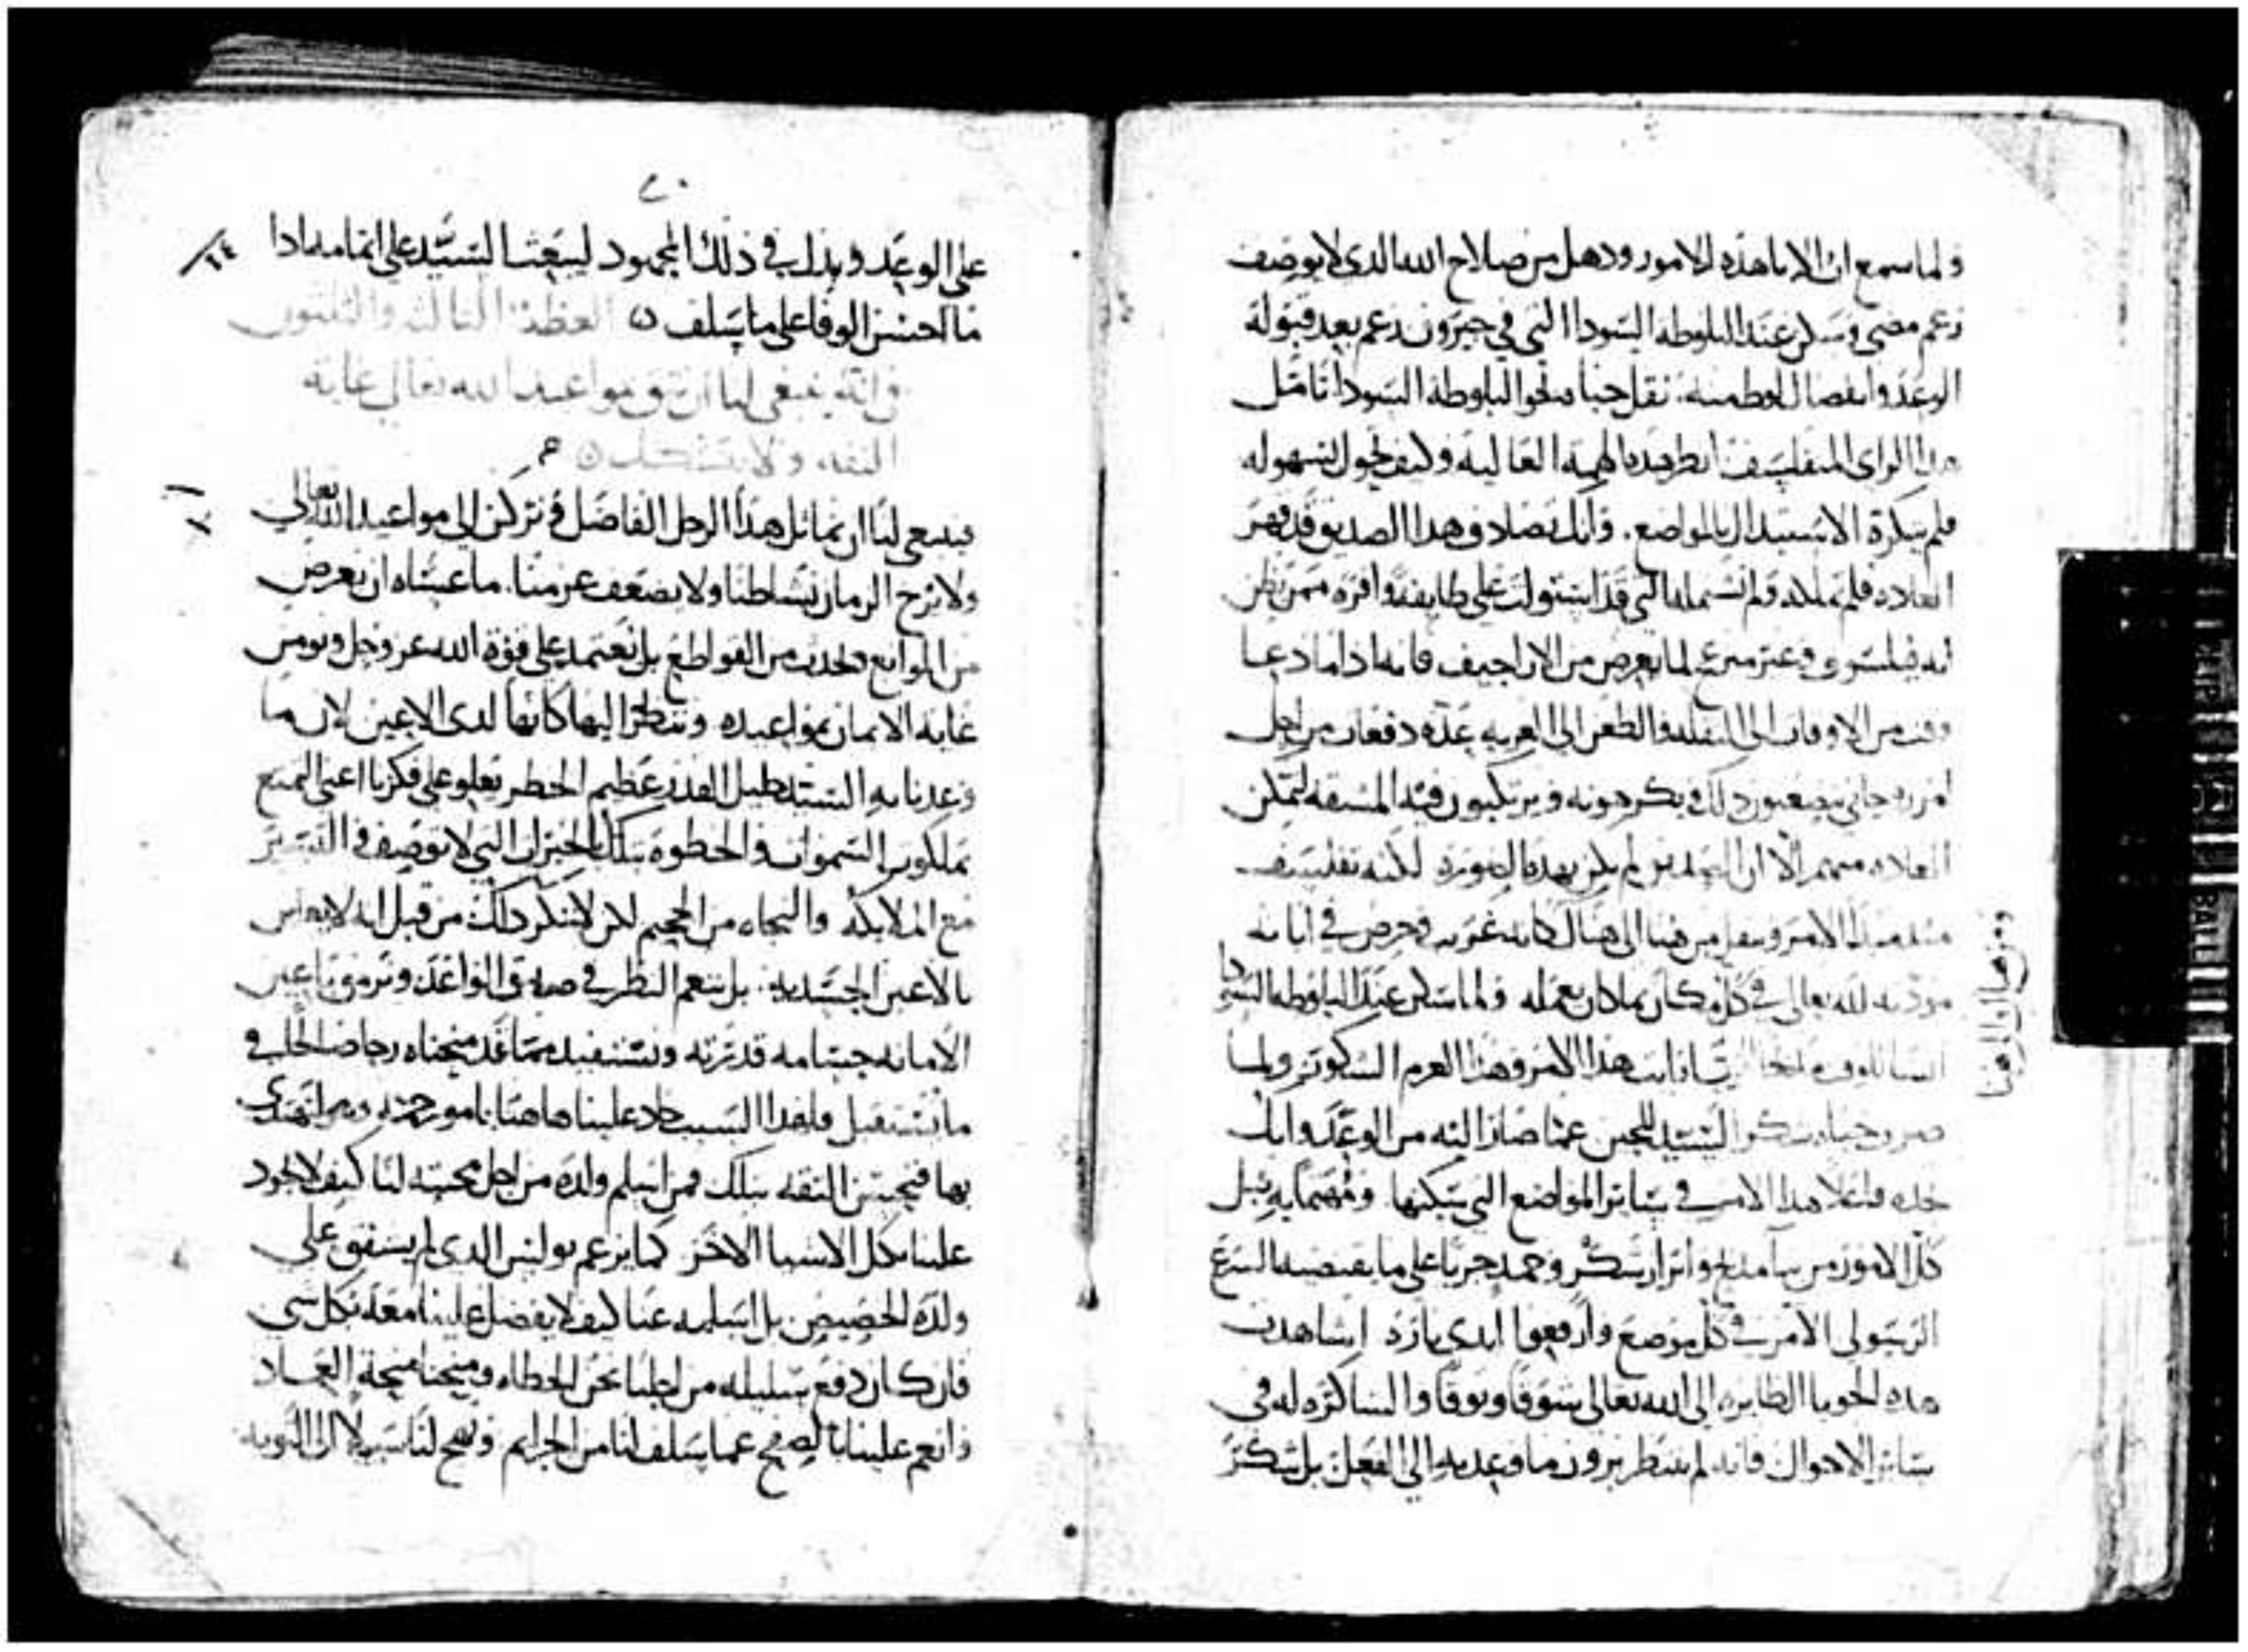 ولما سمع ان الابا هذه الامور ودهل من صلاح الله الذي لا يوصف
زعم مضى وسكن عند البلوطه السودا التي في حبرون زعم بعد قبوله
الوعد وانفصال لوط منه. نقل خباه نحو البلوطه السودا تامل
هذا الراي المتفلسف انظر هذه الهمه العاليه وكيف تحول بسهوله
فلم يكره الاستبدال بالمواضع. وانك تصادف هذا الصديق قد قهر
العاده فلم تملكه ولم تستمله التي قد استولت على طايفة وافره ممن يظن
انه فيلسوف وغير مسرع لما يعرض من الاراجيف فانه اذا ما دعا
وقت من الاوقات الى النقله والظعن الى الغربه عدة دفعات من اجل
امر روحاني يصعبون ذلك ويكرهونه ويرتكبون فيه المشقه لتمكن
العاده منهم الا ان الصديق لم يكن بهذه الصوره لكنه تفلسف
منذ مبدا الامر ونقل من هنا الى هناك كانه غريب وحرص في ابانة
مودته لله تعالى في كل مكان بما كان يعمله ولما سكن عند البلوطه السودا
ومن هناك الى هنا
هذا الامر وهذا العزم الشكور ولما
ضرب خباه شكر السيد للحين عما صار اليه من الوعد وانك
تجده فاعلا هذا الامر في ساير المواضع التي سكنها ومهتما به قبل
كل الامور من بنا مذبح وابراز شكر وحمد جريا على ما يقتضيه الشرع
الرسولي الامر في كل موضع وارفعوا ايدي بارة اشاهدت
هذه الحوبا الطايره الى الله تعالى شوقا وتوقا والشاكره له في
ساير الاحوال فانه لم ينتظر بروز ما وعد به الى الفعل بل شكر
٢٠
على الوعد وبذل في ذلك المجهود ليبعث السيد على اتمامه اذا
ما احسن الوفا على ما سلف العظة الثالثه والثلثون
في انه ينبغي لنا ان نثق بمواعيد الله تعالى غاية
الثقه ولا نتشكك
فينبغي لنا ان نماثل هذا الرجل الفاضل ونركن الى مواعيد الله تعالى
ولا يزح الزمان نشاطنا ولا يضعف عزمنا. ما عساه ان يعرض
من الموانع ويحدث من القواطع بل نعتمد على قوة الله عز وجل ونومن
غاية الايمان بمواعيده وننظر اليها كانها لدى الاعين لان ما
وعدنا به السيد جليل القدر عظيم الخطر يعلو على فكرنا اعني التمتع
بملكوت السموات والحظوة بتلك الخيرات التي لا توصف والتبتر
مع الملايكة والنجاه من الجحيم لكن لا ننكر ذلك من قبل انه لا يعاين
بالاعين الجسديه. بل ننعم النظر في صدق الواعد ونرمق باعين
الامانه جسامة قدرته ونستفيد مما قد منحناه رجا صالحا في
ما نستقبل ولهذا السبب جاد علينا هاهنا بامور جمه لنهتدي
بها فنحسن الثقه بتلك فمن اسلم ولده من اجل محبته لنا كيف لا يجود
علينا بكل الاشيا الاخر كما يزعم بولس الذي لم يشفق على
ولده الخصيص بل اسلمه عنا كيف لا يفضل علينا معه بكل شي
فان كان دفع سليله من اجلنا نحن الخطاه ومنحنا منحة العماد
وانعم علينا بالصفح عما سلف لنا من الجرايم ونهج لنا سبيلا الى التوبه